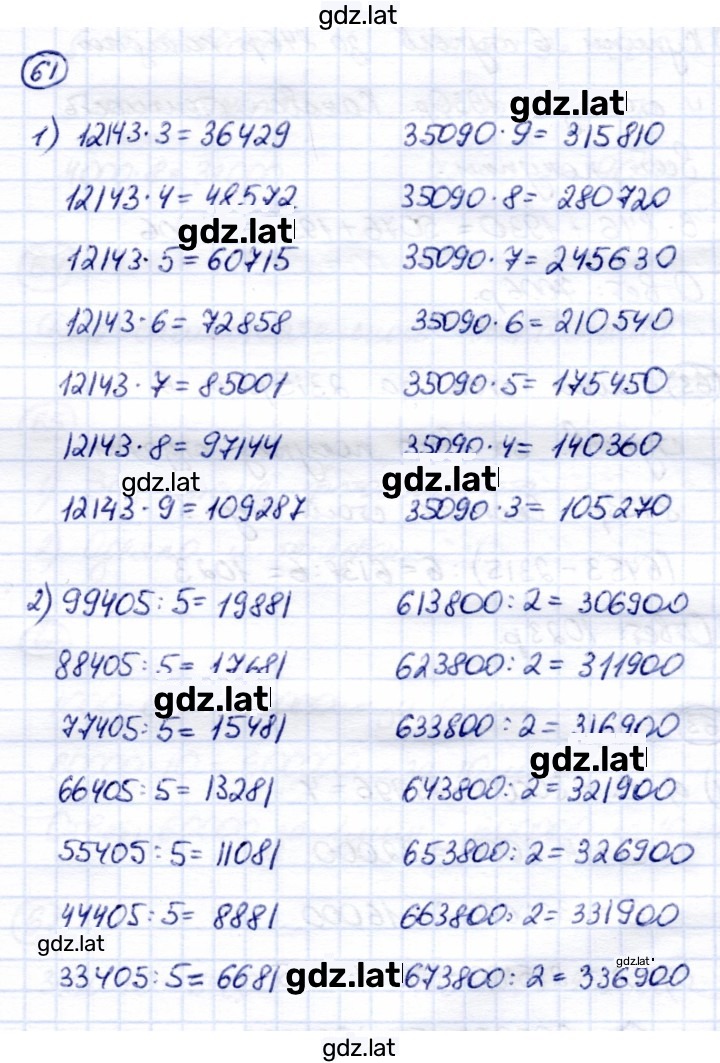 gdz.lat
61
gdz.lat
1) 12143·3=36429 35090·9=315810
12143·4=48572 35090·8=280720
gdz.lat
12143·5=60715 35090·7=245630
12143·6=72858 35090·6=210540
12143·7=85001 35090·5=175450
12143·8=97144 35090·4=140360
gdz.lat gdz.lat
12143·9=109287 35090·3=105270
2) 99405:5=19881 613800:2=306900
88405:5=17681 623800:2=311900
gdz.lat
77405:5=15481 633800:2=316900
gdz.lat
66405:5=13281 643800:2=321900
55405:5=11081 653800:2=326900
44405:5=8881 663800:2=331900
gdz.lat
gdz.lat
33405:5=6681 gdz.lat 673800:2=336900
gdz.lat